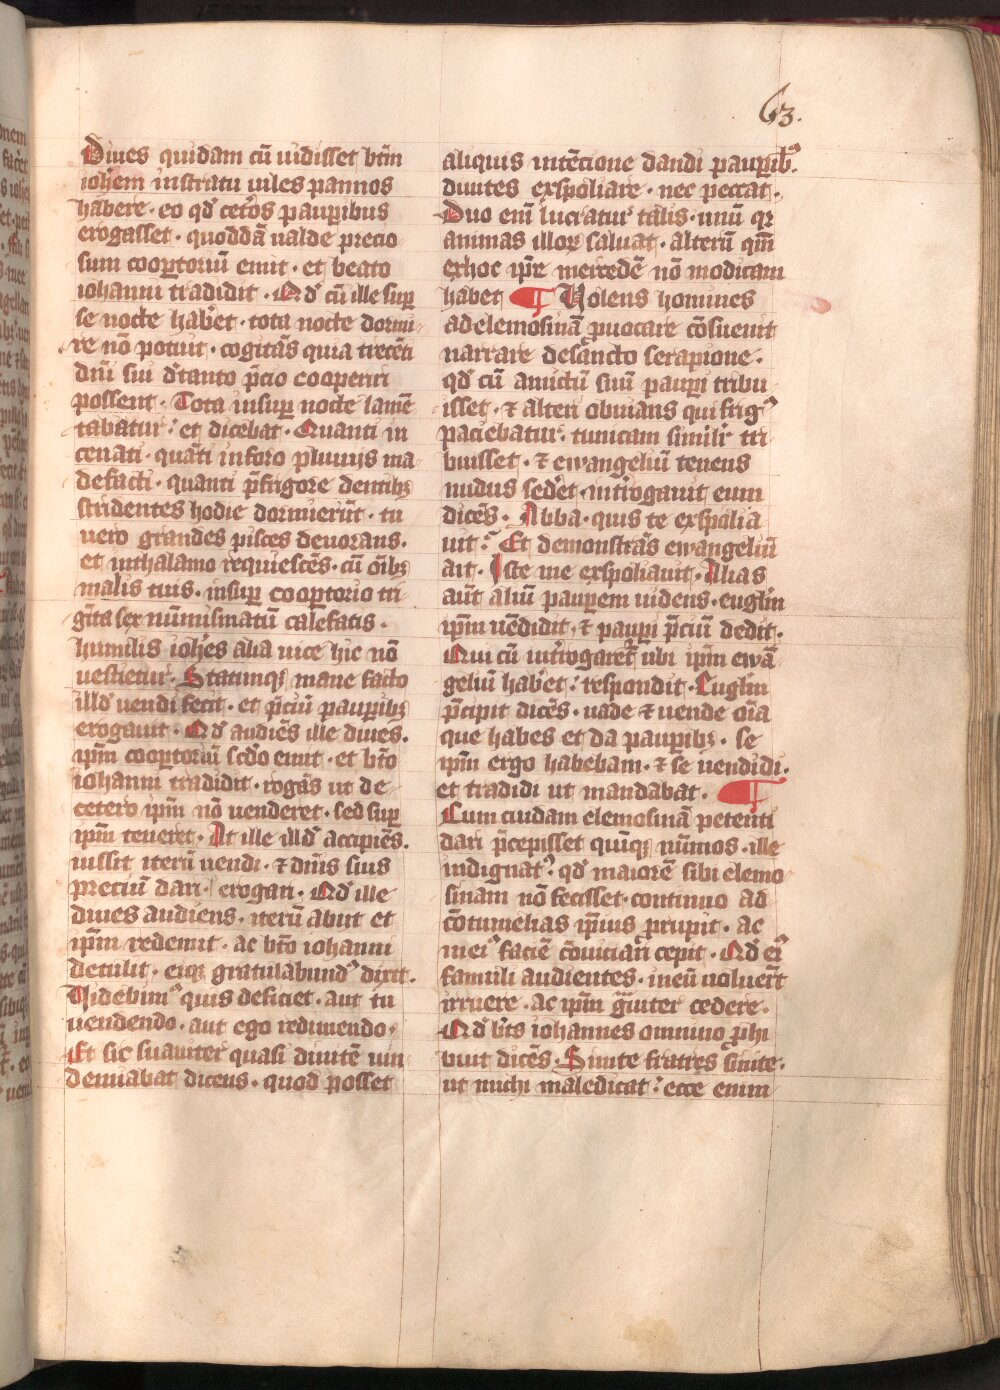 63.
Diues quidam cū uidisset btm̄
ioh̄em in stratu uiles pannos
habere · eo qd̓ cetōs paup̲ibus
erogasset · quoddā ualde precio
sum coop̲toriū emit · et beato
iohanni tradidit · Qd̓ cū ille sup̲
se nocte hab̓et · tota nocte dormi
re nō potuit · cogitās quia trecēti
dnī sui d̓tanto p̄cio cooperiri
possent · Tota insup̲ nocte lamē
tabatur · et dicebat · Quanti in
cenati · quāti inforo pluuijs ma
defacti · quanti p̄frigore dentibꝫ
stridentes hodie dormierūt · tu
uero grandes pisces deuorans ·
et inthalamo requiescēs · cū oībꝫ
malis tuis · insup̲ coop̲torio tri
gīta sex nūmismatū calefacis ·
humilis ioh̓es alia uice hic nō
uestietur · Statimqꝫ mane facto
illd̓ uendi fecit · et p̄ciū paup̲ibꝫ
erogauit · Qd̓ audiēs ille diues ·
ip̄m coop̲toriū scd̓o emit · et bt̄o
iohanni tradidit · rogās ut de
cetero ip̄m nō uenderet · sed sup̲
ip̄m teneret · At ille illd̓ accipiēs ·
iussit iterū uendi · ⁊ dnīs suis
preciū dari · erogari · Qd̓ ille
diues audiens · iterū abiit et
ip̄m redemit · ac bt̄o iohanni
detulit · eiqꝫ gratulabundꝰ dixit ·
Uidebimꝰ quis deficiet · aut tu
uendendo · aut ego redimendo ·
Et sic suauiter quasi diuitē uin
demiabat dicens · quod posset
aliquis intēcione dandi paup̲ibꝰ
diuites exspoliare · nec peccat ·
Duo eni̅ lucratur talis · unū qꝛ
animas illoꝝ saluat · alterū qm̄
exhoc ip̄e mercedē nō modicam
habet ¶ Uolens homines
ad elemosinā ꝓuocare cōsueuit
narrare desancto serapione ·
qd̓ cū amictū suū paup̲i tribu
isset · ⁊ alteri obuians qui frigꝰ
paciebatur · tunicam similir̓ tri
buisset · ⁊ ewangeliū tenens
nudus sed̓et · int̓rogauit eum
dicēs · Abba · quis te exspolia
uit · Et demonstrās ewangeliū
ait · Iste me exspoliauit · Alias
aūt aliū paup̲em uidens · euglīm
ip̄m uēdidit · ⁊ paup̲i p̄ciū dedit ·
Qui cū int̓rogaret᷑ ubi ip̄m ewā
geliū hab̓et · respondit · Euglīm
p̄cipit dicēs · uade ⁊ uende oīa
que habes et da paup̲ibꝫ · se
ip̄m ergo habebam · ⁊ se uendidi ·
et tradidi ut mandabat · ¶
Cum cuidam elemosinā petenti
dari p̄cepisset quīqꝫ nūmos · ille
indignatꝰ · qd̓ maiorē sibi elemo
sinam nō fecisset · continuo ad
cōtumelias ip̄ius prupit · ac
in eiꝰ faciē cōuiciari cepit · Qd̓ eiꝰ
famuli audientes · ineū uoluer̄t
irruere · ac ip̄m gͣuiter cedere ·
Qd̓ bt̄s iohannes omnino ꝓhi
buit dicēs · Sinite fratres sinite ·
ut michi maledicat · ecce enim